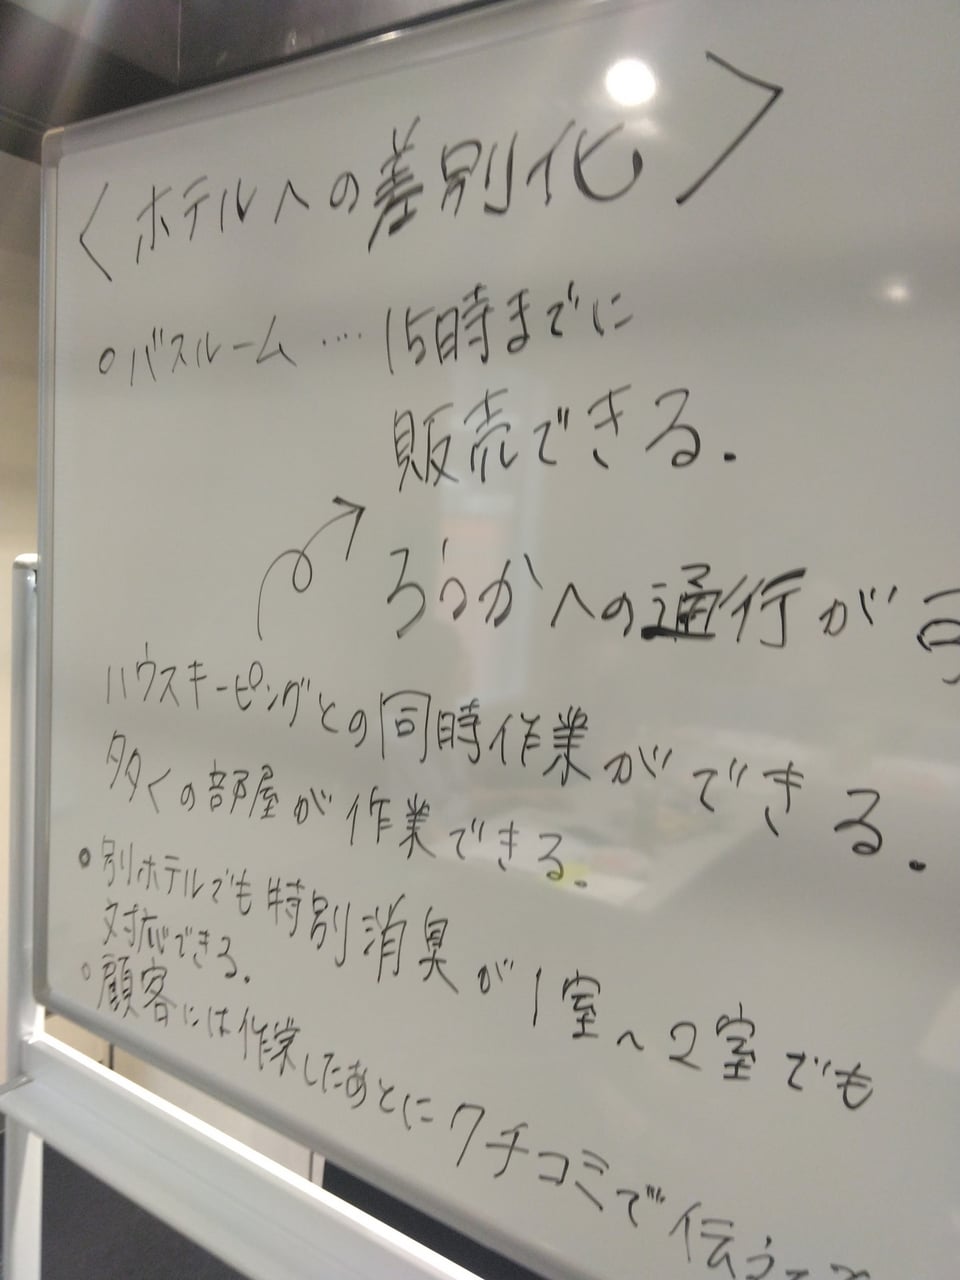 <ホテルへの差別化>
○バスルーム…‥15時までに
販売できる.
ろうかへの通行が
ハウスキーピングとの同時作業ができる.
多くの部屋が作業できる.
○別ホテルでも特別消臭が1室~2室でも
対応できる.
○顧客には作業したあとにクチコミで伝